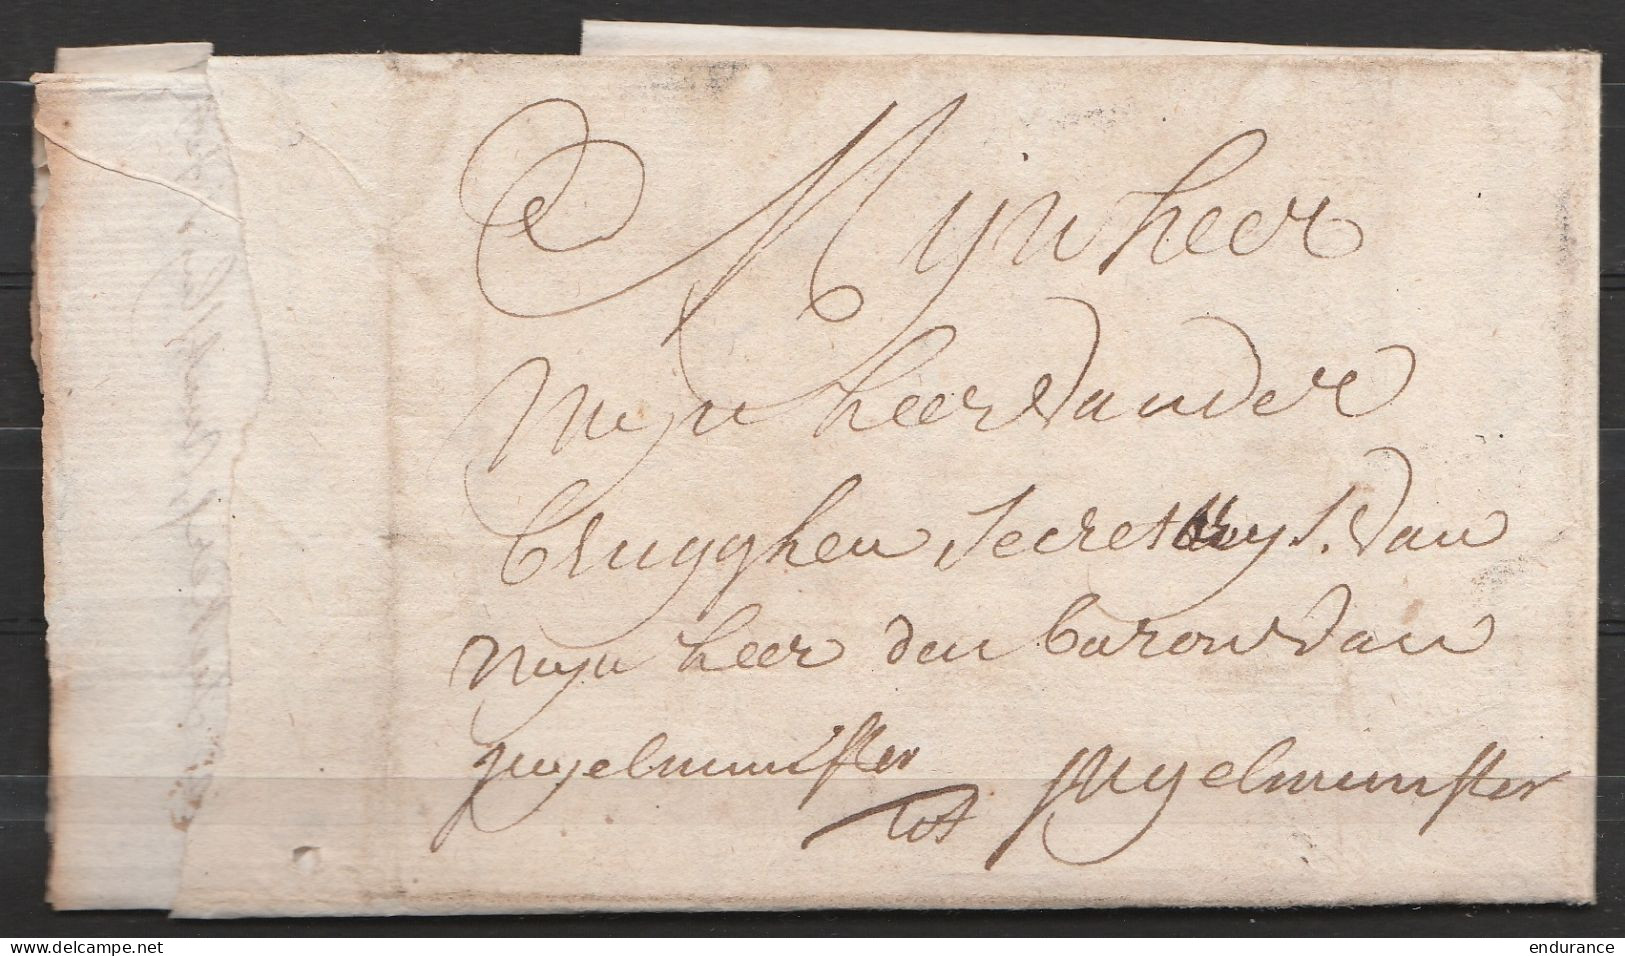 Mynheer
Mynheer vander
brugghen Secretarys. van
mynheer den baron van
yngelmunster
tot yngelmunster
delcampe.net
endurance